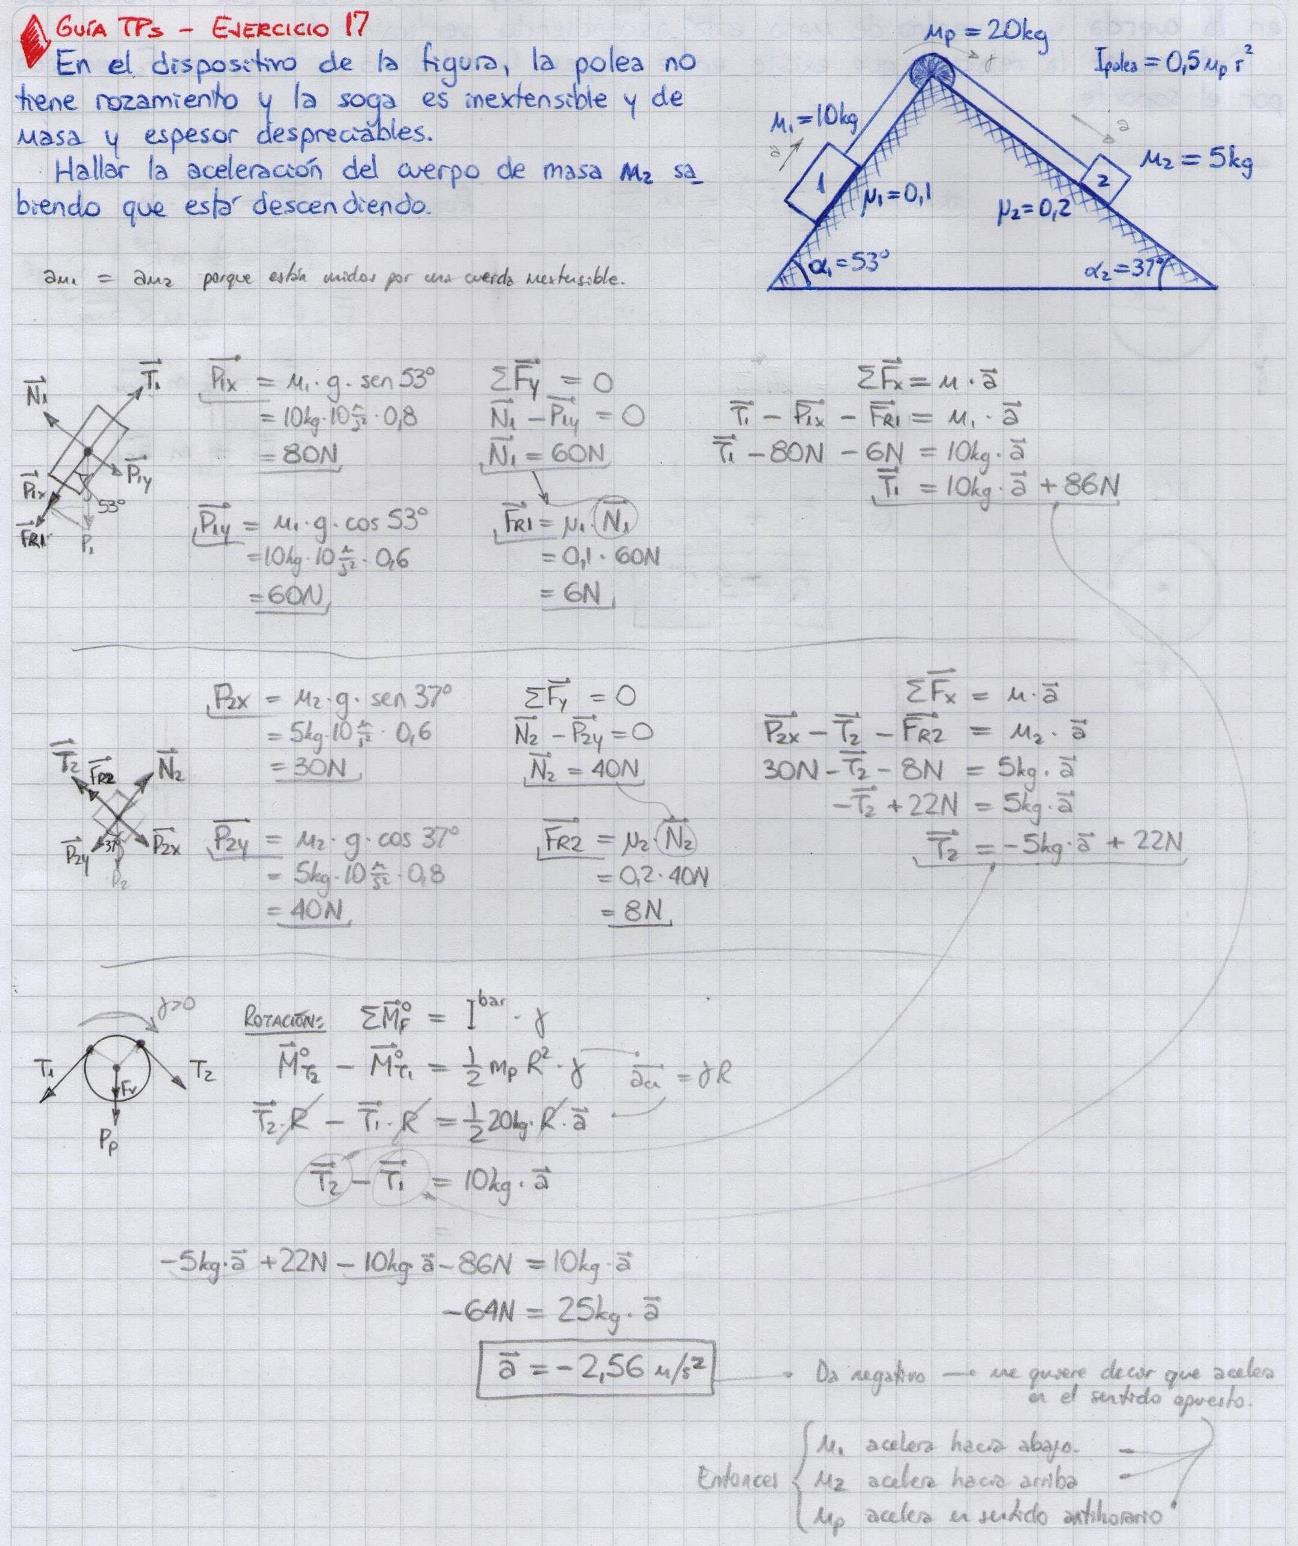 GUÍA TPs - EJERCICIO 17
En el dispositivo de la figura, la polea no
tiene rozamiento y la soga es inextensible y de
masa y espesor despreciables.
Hallar la aceleración del cuerpo de masa M2 sa_
biendo que está descendiendo.
Mp = 20kg
γ
Ipolea = 0,5 Mp r²
M1 = 10kg
a
a
M2 = 5kg
1
2
μ1 = 0,1
μ2 = 0,2
α1 = 53°
α2 = 37°
aM1 = aM2 porque están unidos por una cuerda inextensible.
N1
T1
P1x
P1y
53°
FR1
P1
P1x = M1 · g · sen 53°
= 10kg · 10 m/s² · 0,8
= 80N
P1y = M1 · g · cos 53°
= 10kg · 10 m/s² · 0,6
= 60N
ΣFy = 0
N1 - P1y = 0
N1 = 60N
FR1 = μ1 · N1
= 0,1 · 60N
= 6N
ΣFx = M · a
T1 - P1x - FR1 = M1 · a
T1 - 80N - 6N = 10kg · a
T1 = 10kg · a + 86N
T2
FR2
N2
P2y
37°
P2x
P2
P2x = M2 · g · sen 37°
= 5kg · 10 m/s² · 0,6
= 30N
P2y = M2 · g · cos 37°
= 5kg · 10 m/s² · 0,8
= 40N
ΣFy = 0
N2 - P2y = 0
N2 = 40N
FR2 = μ2 · N2
= 0,2 · 40N
= 8N
ΣFx = M · a
P2x - T2 - FR2 = M2 · a
30N - T2 - 8N = 5kg · a
-T2 + 22N = 5kg · a
T2 = -5kg · a + 22N
γ>0
T1
T2
Fv
Pp
ROTACIÓN: ΣM°F = I bar · γ
M°T2 - M°T1 = 1/2 mp R² · γ
aM = γR
T2 · R - T1 · R = 1/2 20kg · R · a
T2 - T1 = 10kg · a
-5kg · a + 22N - 10kg · a - 86N = 10kg · a
-64N = 25kg · a
a = -2,56 m/s²
Da negativo → me quiere decir que acelera
en el sentido opuesto.
Entonces
M1 acelera hacia abajo.
M2 acelera hacia arriba
Mp acelera en sentido antihorario